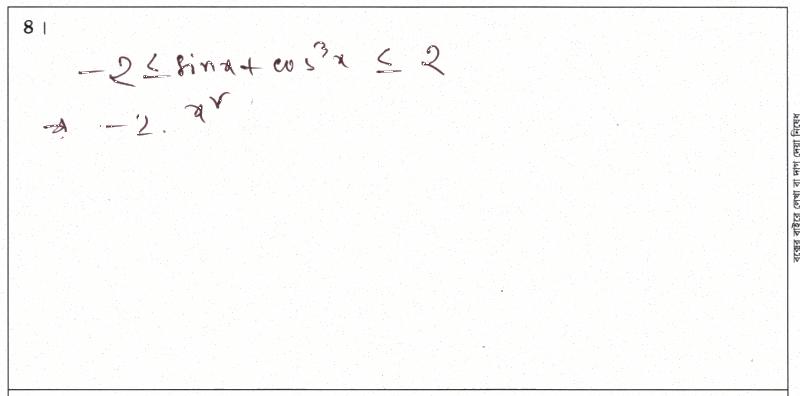 ৪।
-2 ≤ sinx + cos³x ≤ 2
⇒ -2. x²
বক্সের বাইরে লেখা বা দাগ দেয়া নিষেধ